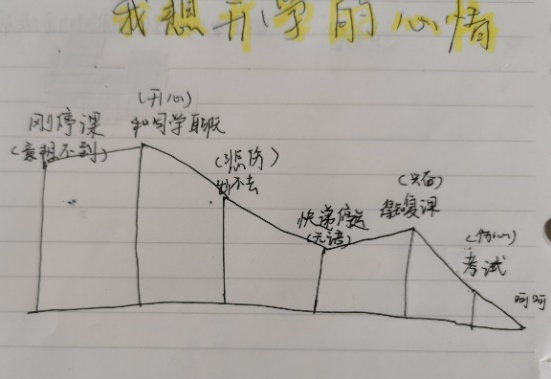 我想开学的心情
刚停课
(意想不到)
(开心)
和同学联玩
(悲伤)
出不去
快递停运
(无语)
(兴奋)
复课
(伤心)
考试
呵呵